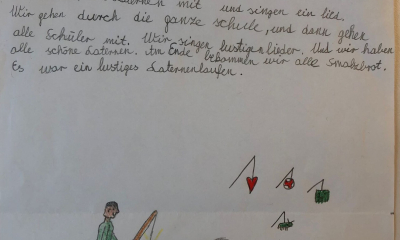 mit und singen ein lied.
Wir gehen durch die ganze schule, und dann gehen
alle Schüler mit. Wir singen lustigen lieder. Und wir haben
alle schöne Laternen. Am Ende bekommen wir alle Smalzbrot.
Es war ein lustiges Laternenlaufen.